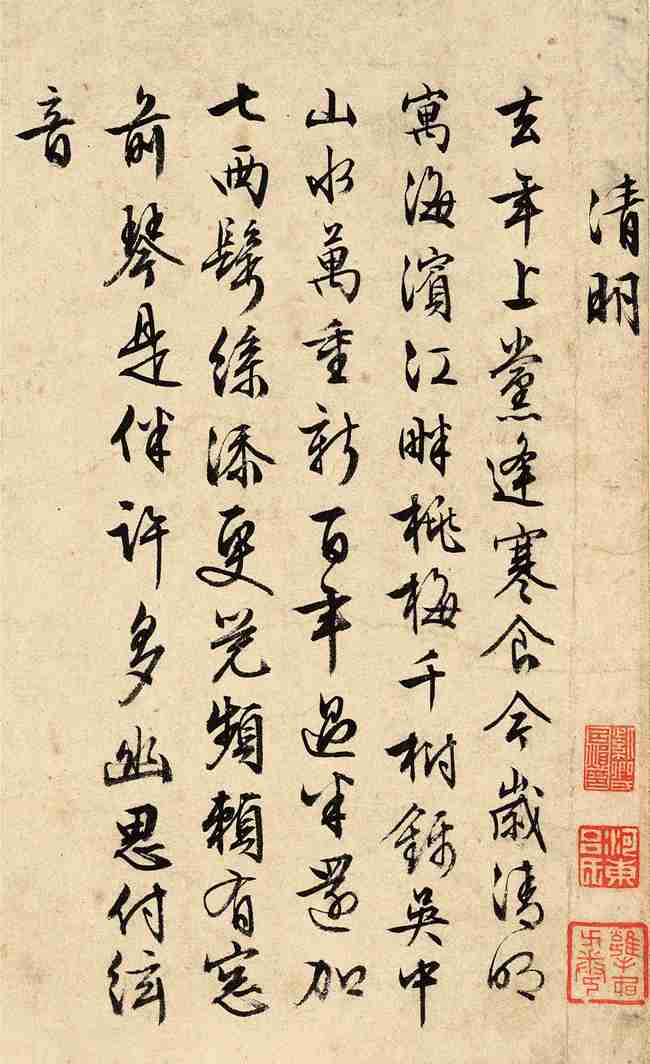 清明
去年上黨逢寒食今歲清明
寓海濱江畔桃梅千樹錦吳中
山水萬重新百年過半還加
七兩鬢絲添更覺頻賴有窓
前琴是伴許多幽思付絃
音
河東